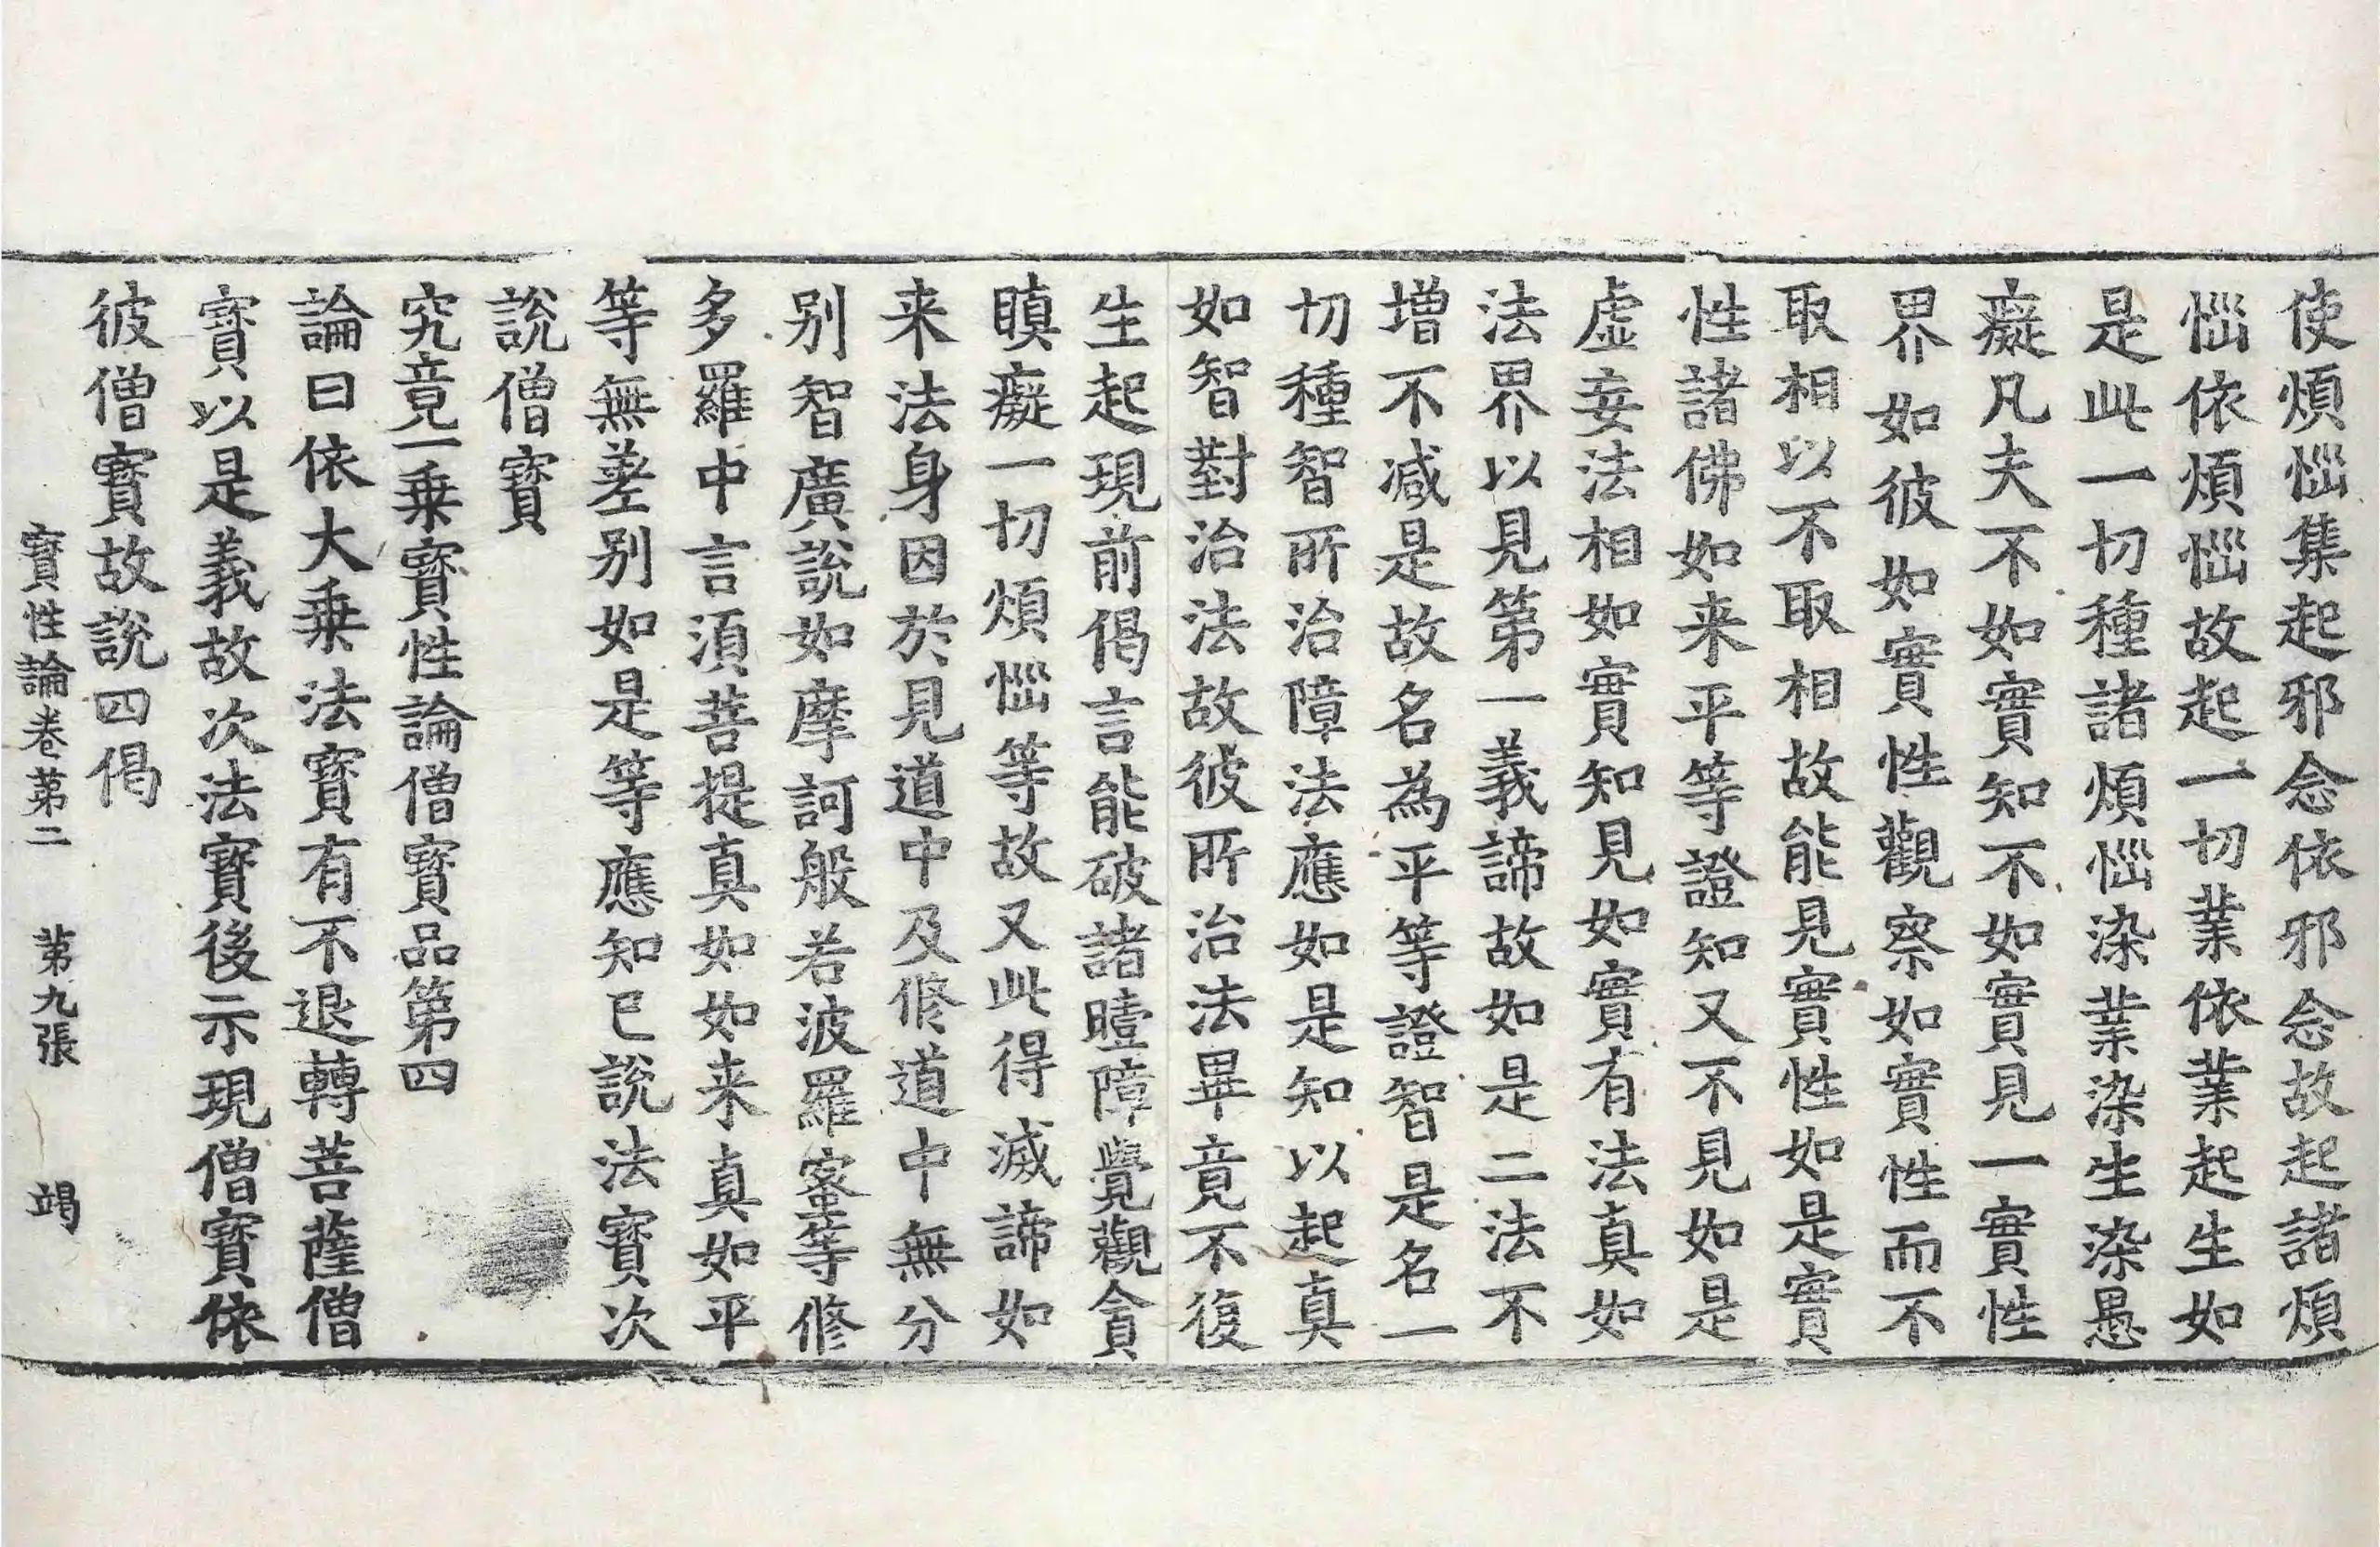 使煩惱集起邪念依邪念故起諸煩
惱依煩惱故起一切業依業起生如
是此一切種諸煩惱染業染生染愚
癡凡夫不如實知不如實見一實性
界如彼如實性觀察如實性而不
取相以不取相故能見實性如是實
性諸佛如来平等證知又不見如是
虛妄法相如實知見如實有法真如
法界以見第一義諦故如是二法不
增不減是故名為平等證智是名一
切種智所治障法應如是知以起真
如智對治法故彼所治法畢竟不復
生起現前偈言能破諸曀障覺觀貪
瞋癡一切煩惱等故又此得滅諦如
来法身因於見道中及修道中無分
別智廣說如摩訶般若波羅蜜等修
多羅中言須菩提真如如来真如平
等無差別如是等應知已說法寶次
說僧寶
究竟一乗寶性論僧寶品第四
論曰依大乗法寶有不退轉菩薩僧
寶以是義故次法寶後示現僧寶依
彼僧寶故說四偈
寶性論卷第二 第九張 竭